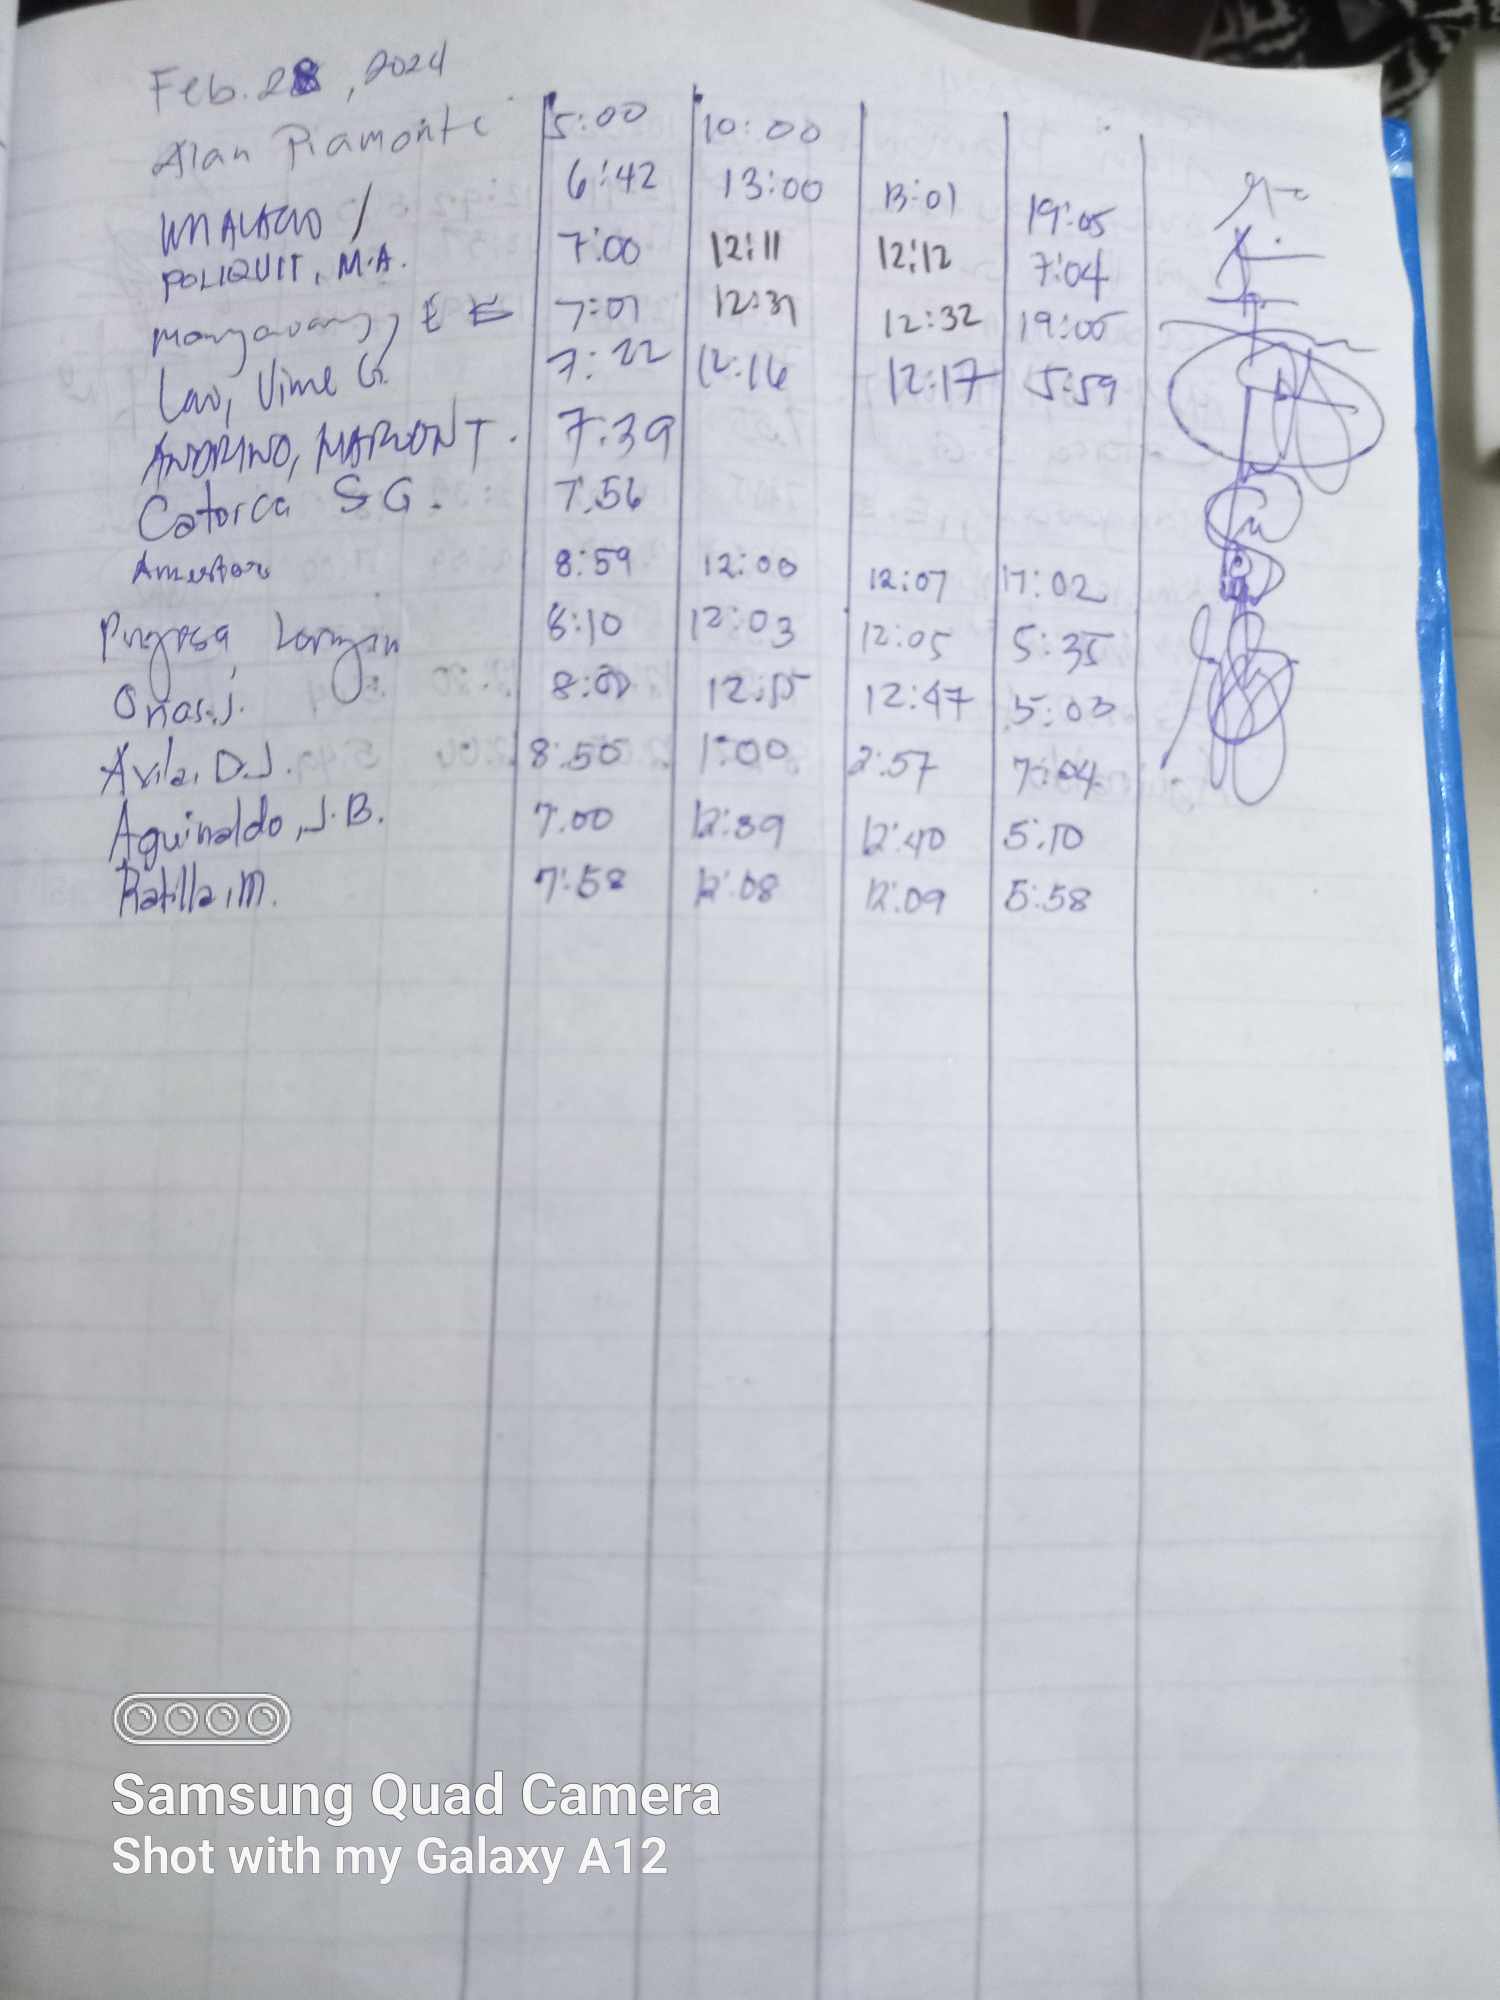 Feb. 28, 2024
Alan Piamonte 5:00 10:00
6:42 13:00 13:01 19:05
POLIQUIT, M.A. 7:00 12:11 12:12 7:04
E 7:01 12:31 12:32 19:05
Lao, Vime G. 7:22 12:16 12:17 5:59
ANDRINO, MARVON T. 7:39
Catorca S G. 7:56
8:59 12:00 12:07 17:02
8:10 12:03 12:05 5:35
Onas, J. 12:47 5:03
Avila, D.J. 8:50 1:00 2:57 7:04
Aguinaldo, J.B. 7:00 12:39 12:40 5:10
Ratilla, M. 7:58 12:08 12:09 5:58
Samsung Quad Camera
Shot with my Galaxy A12